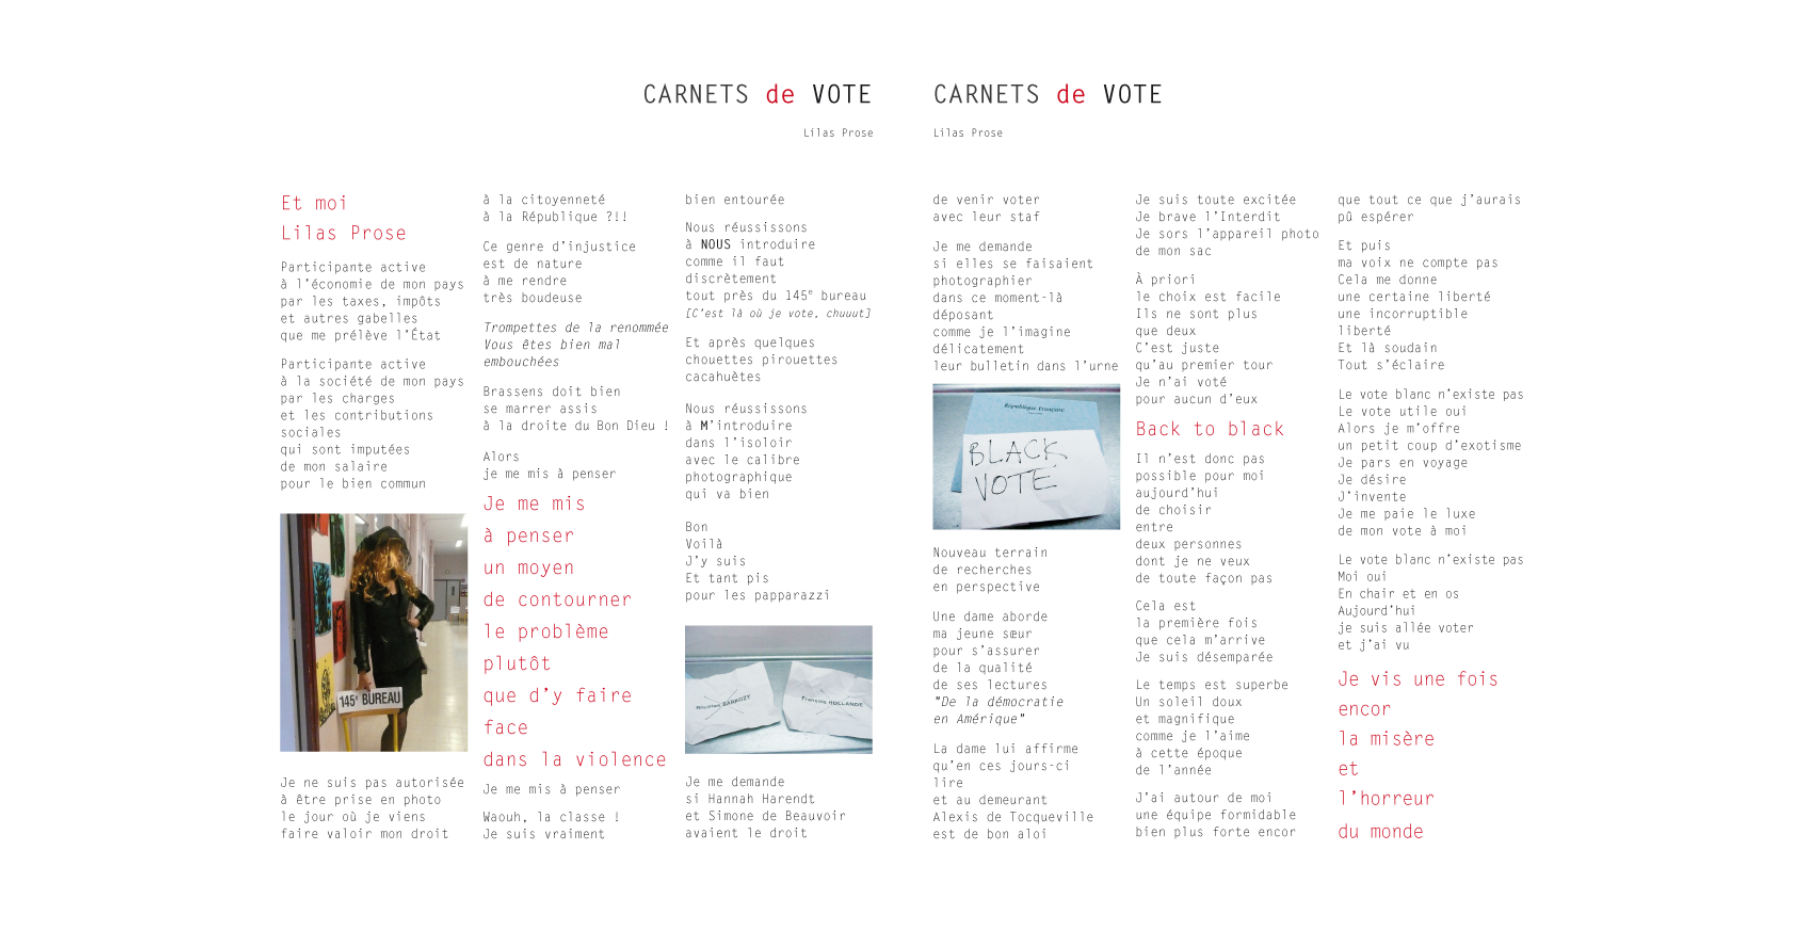 CARNETS de VOTE
Lilas Prose
Et moi
Lilas Prose
Participante active
à l'économie de mon pays
par les taxes, impôts
et autres gabelles
que me prélève l'État
Participante active
à la société de mon pays
par les charges
et les contributions
sociales
qui sont imputées
de mon salaire
pour le bien commun
145e BUREAU
Je ne suis pas autorisée
à être prise en photo
le jour où je viens
faire valoir mon droit
à la citoyenneté
à la République ?!!
Ce genre d'injustice
est de nature
à me rendre
très boudeuse
Trompettes de la renommée
Vous êtes bien mal
embouchées
Brassens doit bien
se marrer assis
à la droite du Bon Dieu !
Alors
je me mis à penser
Je me mis
à penser
un moyen
de contourner
le problème
plutôt
que d'y faire
face
dans la violence
Je me mis à penser
Waouh, la classe !
Je suis vraiment
bien entourée
Nous réussissons
à NOUS introduire
comme il faut
discrètement
tout près du 145e bureau
[C'est là où je vote, chuuut]
Et après quelques
chouettes pirouettes
cacahuètes
Nous réussissons
à M'introduire
dans l'isoloir
avec le calibre
photographique
qui va bien
Bon
Voilà
J'y suis
Et tant pis
pour les papparazzi
Nicolas SARKOZY
François HOLLANDE
Je me demande
si Hannah Harendt
et Simone de Beauvoir
avaient le droit
CARNETS de VOTE
Lilas Prose
de venir voter
avec leur staf
Je me demande
si elles se faisaient
photographier
dans ce moment-là
déposant
comme je l'imagine
délicatement
leur bulletin dans l'urne
République Française
BLACK
VOTE
Nouveau terrain
de recherches
en perspective
Une dame aborde
ma jeune sœur
pour s'assurer
de la qualité
de ses lectures
"De la démocratie
en Amérique"
La dame lui affirme
qu'en ces jours-ci
lire
et au demeurant
Alexis de Tocqueville
est de bon aloi
Je suis toute excitée
Je brave l'Interdit
Je sors l'appareil photo
de mon sac
À priori
le choix est facile
Ils ne sont plus
que deux
C'est juste
qu'au premier tour
Je n'ai voté
pour aucun d'eux
Back to black
Il n'est donc pas
possible pour moi
aujourd'hui
de choisir
entre
deux personnes
dont je ne veux
de toute façon pas
Cela est
la première fois
que cela m'arrive
Je suis désemparée
Le temps est superbe
Un soleil doux
et magnifique
comme je l'aime
à cette époque
de l'année
J'ai autour de moi
une équipe formidable
bien plus forte encor
que tout ce que j'aurais
pû espérer
Et puis
ma voix ne compte pas
Cela me donne
une certaine liberté
une incorruptible
liberté
Et là soudain
Tout s'éclaire
Le vote blanc n'existe pas
Le vote utile oui
Alors je m'offre
un petit coup d'exotisme
Je pars en voyage
Je désire
J'invente
Je me paie le luxe
de mon vote à moi
Le vote blanc n'existe pas
Moi oui
En chair et en os
Aujourd'hui
je suis allée voter
et j'ai vu
Je vis une fois
encor
la misère
et
l'horreur
du monde